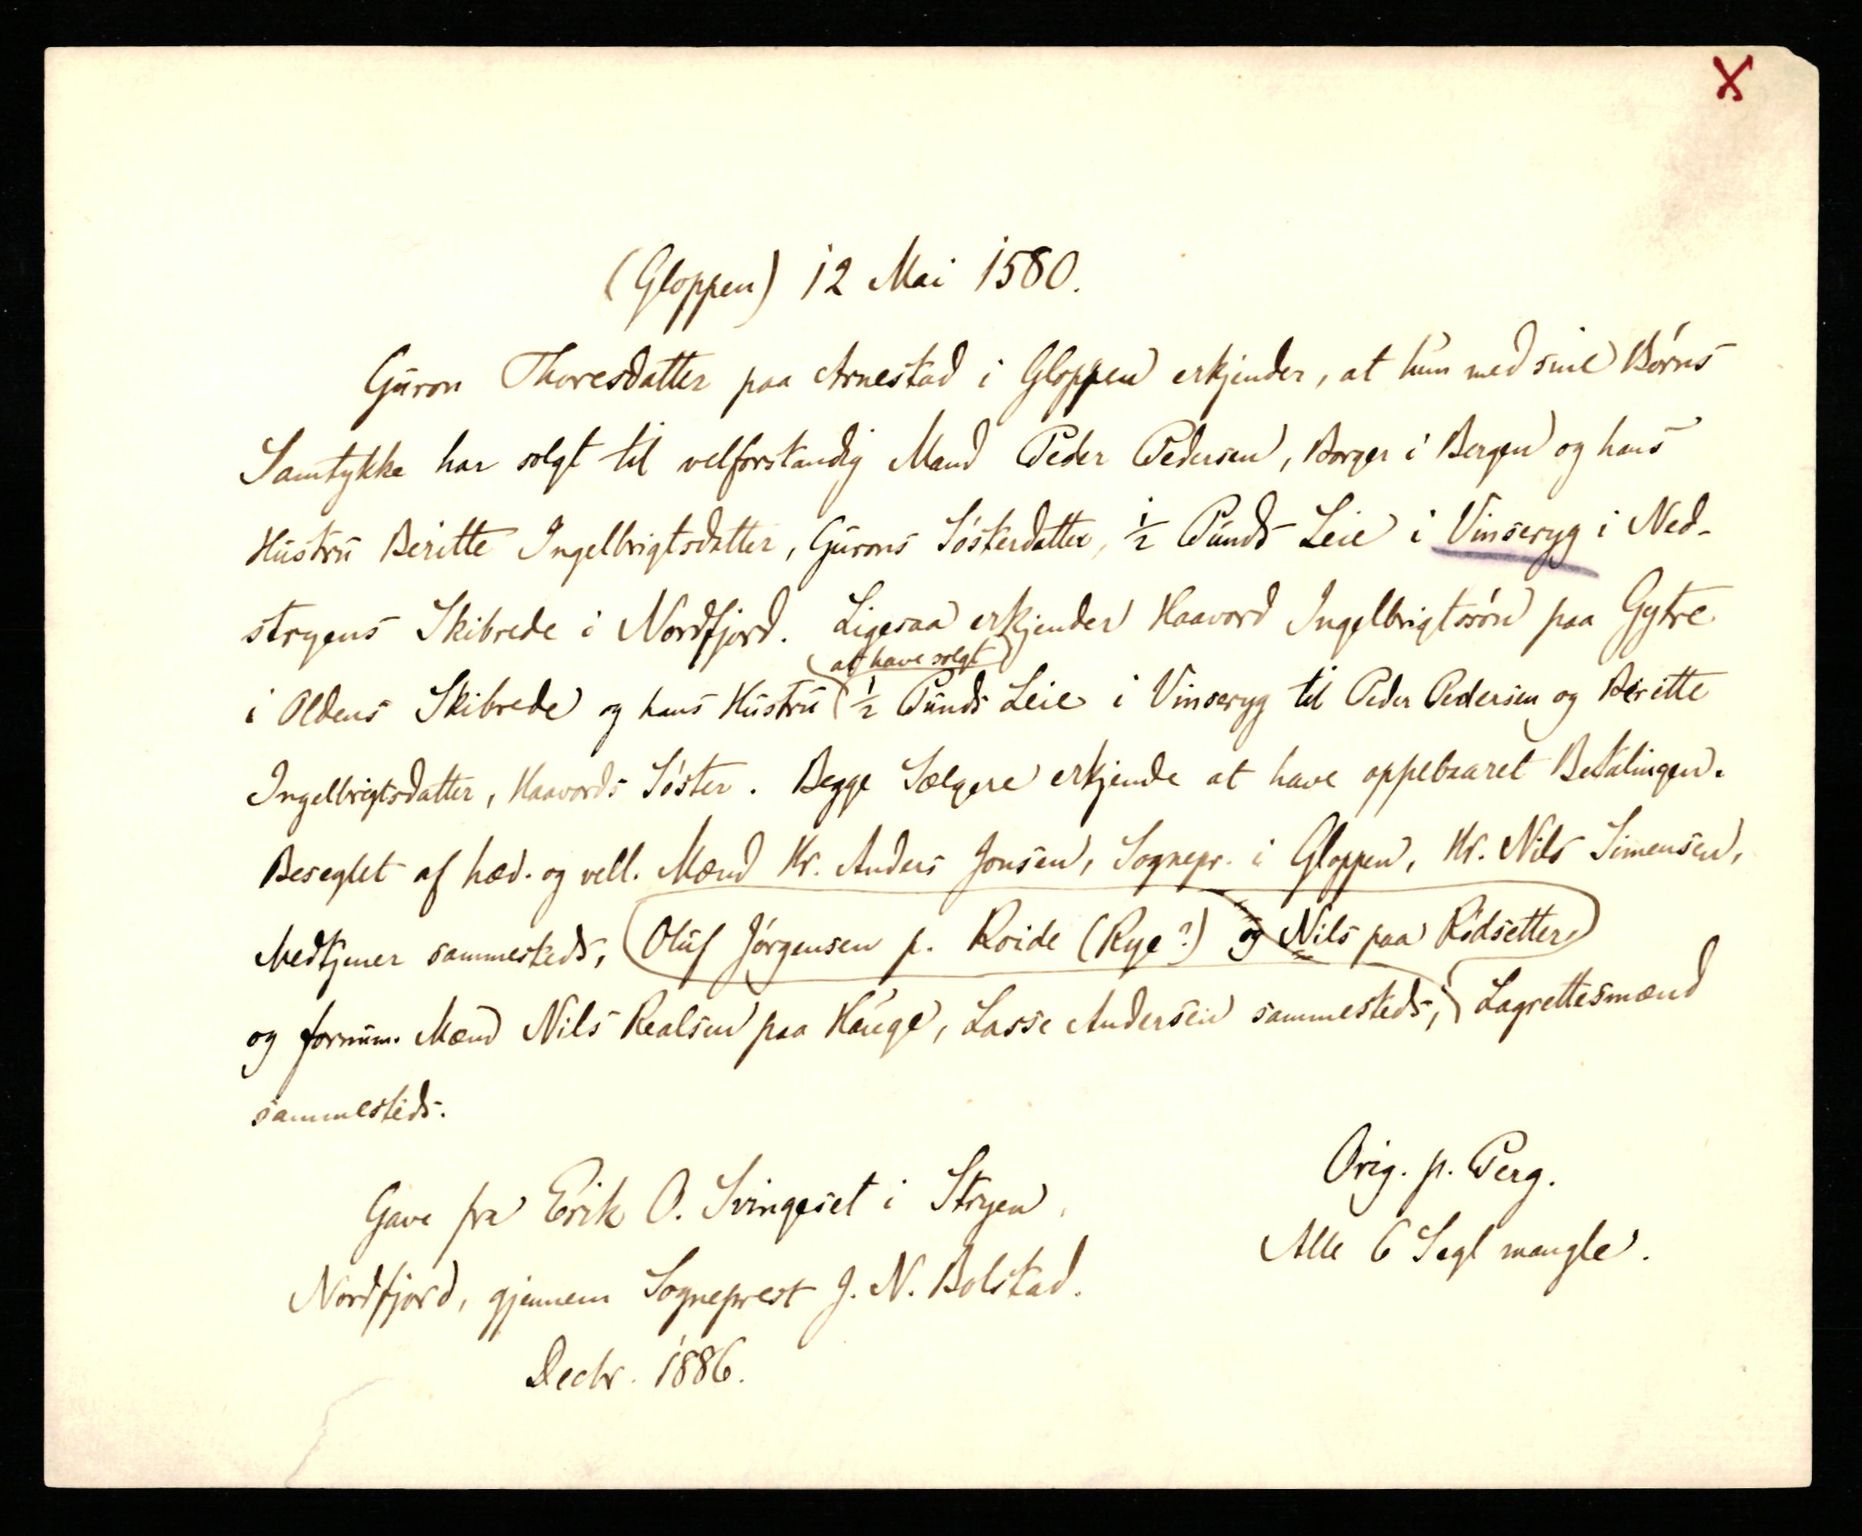 X
(Gloppen) 12 Mai 1580.
Guron Thoresdatter paa Arnestad i Gloppen erkjender, at hun med sine Børns
Samtykke har solgt til velforstandig Mand Peder Pedersen, Borger i Bergen og hans
Hustru Beritte Ingelbrigtsdatter, Gurons Søsterdatter, ½ Punds Leie i Vinseryg i Ned-
stryens Skibrede i Nordfjord. Ligesaa erkjender Haavord Ingelbrigtssøn paa Gytre
at have solgt
i Oldens Skibrede og hans Hustru ½ Punds Leie i Vinseryg til Peder Pedersen og Beritte
Ingelbrigtsdatter, Haavords Søster. Begge Sælgere erkjende at have oppebaaret Betalingen.
Beseglet af hæd. og vell. Mænd Hr. Anders Jonsen, Sognepr. i Gloppen, Hr. Nils Simensen,
Medtjener sammesteds, Oluf Jørgensen p. Roide (Rye?) og Nils paa Rødsetter
og fornum. Mænd Nils Realsen paa Hauge, Lasse Andersen sammesteds, Lagrettesmænd
sammesteds.
Orig. p. Perg.
Alle 6 Segl mangle.
Gave fra Erik O. Svingeset i Stryen,
Nordfjord, gjennem Sogneprest J. N. Bolstad.
Decbr. 1886.